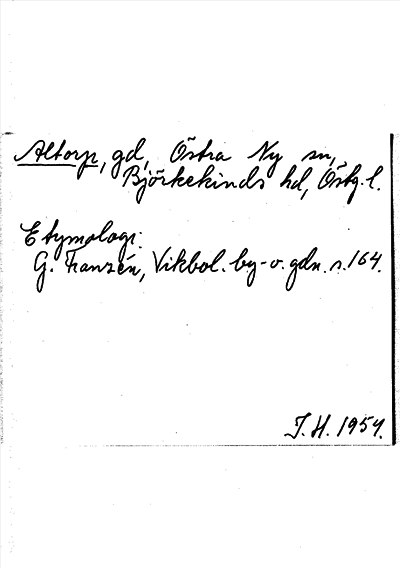 Altorp, gd, Östra Ny sn,
Björkekinds hd, Östg. l.
Etymologi:
G. Franzén, Vikbol. by- o. gdn. s. 164.
I. H. 1954.